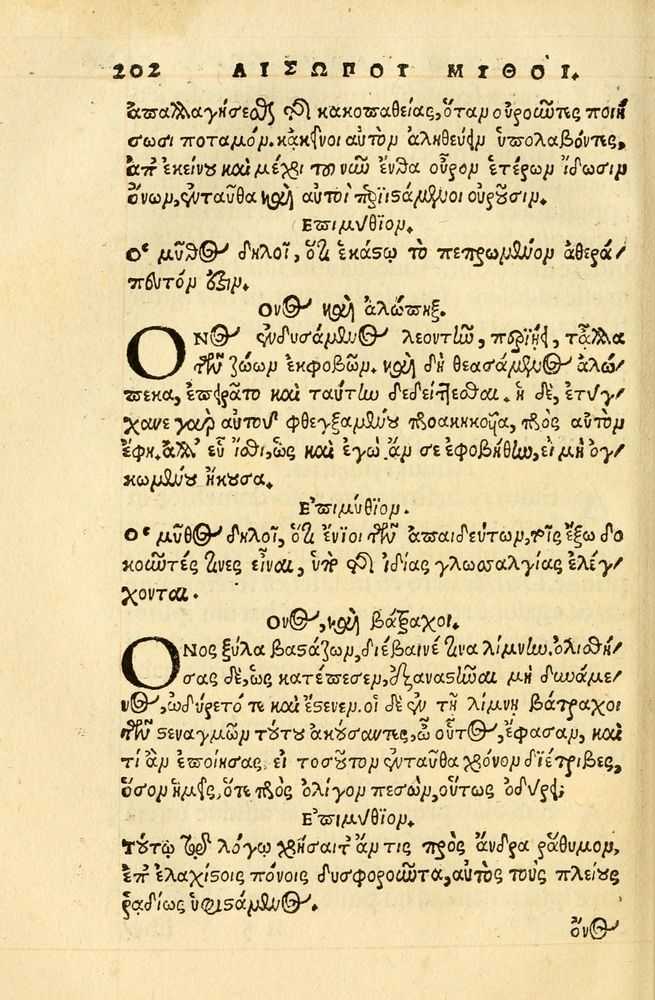 202 ΑΙΣΩΠΟΥ ΜΥΘΟΙ.
ἀπαλλαγήσεσθαι τῆς κακοπαθείας, ὅταν οὐροῦντες ποιή
σωσι ποταμόν. κἀκεῖνοι αὐτὸν ἀληθεύειν ὑπολαβόντες,
ἀπ' ἐκείνου καὶ μέχρι τοῦ νῦν ἔνθα οὖρον ἑτέρων ἴδωσιν
ὄνων, ἐνταῦθα καὶ αὐτοὶ περιϊστάμενοι οὐροῦσιν.
Επιμύθιον.
Ὁ μῦθος δηλοῖ, ὅτι ἑκάστῳ τὸ πεπρωμένον ἀθερά/
πευτόν ἐστιν.
Ονος καὶ ἀλώπηξ.
ΟΝος ἐνδυσάμενος λεοντῆν, περιῄει, τἆλλα
τῶν ζώων ἐκφοβῶν. καὶ δὴ θεασάμενος ἀλώ/
πεκα, ἐπειρᾶτο καὶ ταύτην δεδείττεσθαι. ἡ δὲ, ἐτύγ/
χανε γὰρ αὐτοῦ φθεγξαμένου προακηκουῖα, πρὸς αὐτὸν
ἔφη. ἀλλ' εὖ ἴσθι, ὡς καὶ ἐγὼ ἄν σε ἐφοβήθην, εἰ μὴ ὀγ/
κωμένου ἤκουσα.
Ἐπιμύθϊον.
Ὁ μῦθος δηλοῖ, ὅτι ἔνϊοι τῶν ἀπαιδεύτων, τοῖς ἔξω δο
κοῦντές τινες εἶναι, ὑπὸ τῆς ἰδίας γλωσσαλγίας ἐλέγ/
χονται.
Ονος, καὶ βάτραχοι.
ΟΝος ξύλα βαστάζων, διέβαινέ τινα λίμνην. ὀλισθή/
σας δὲ, ὡς κατέπεσεν, ἐξαναστῆναι μὴ δυνάμε/
νος, ὠδύρετό τε καὶ ἔστενεν. οἱ δὲ ἐν τῇ λίμνῃ βάτραχοι
τῶν στεναγμῶν τούτου ἀκούσαντες, ὦ οὗτος, ἔφασαν, καὶ
τί ἂν ἐποίησας, εἰ τοσοῦτον ἐνταῦθα χρόνον διέτριβες,
ὅσον ἡμεῖς, ὅτε πρὸς ὀλίγον πεσὼν, οὕτως ὀδύρῃ;
Ἐπιμύθιον.
Τούτῳ τῷ λόγῳ χρήσαιτ' ἄν τις πρὸς ἄνδρα ῥᾴθυμον,
ἐπ' ἐλαχίστοις πόνοις δυσφοροῦντα, αὐτὸς τοὺς πλείους
ῥᾳδίως ὑφιστάμενος.
ὄνος